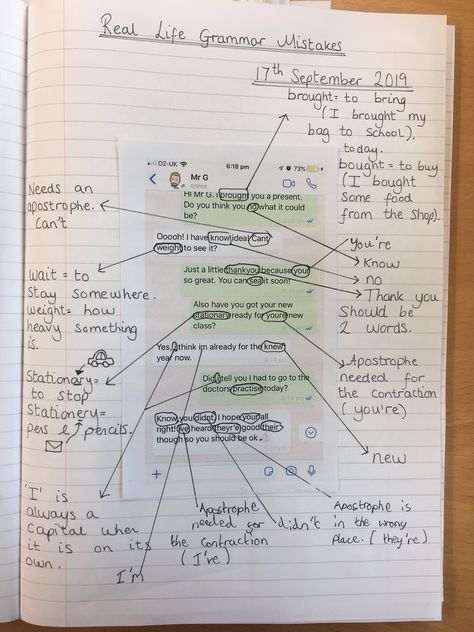 Real Life Grammar Mistakes
17th September 2019
brought = to bring
(I brought my
bag to school).
today.
bought = to buy
(I bought
some food
from the Shop).
Needs an
apostrophe.
Can't
O2-UK
6:18 pm
73%
Mr G
online
Hi Mr G. I brought you a present.
Do you think you no what it could
be?
Ooooh! I have know idea! Cant
weight to see it?
Just a little thankyou because your
so great. You can seal it soon!
Also have you got your new
stationary ready for youre new
class?
Yes, I think im already for the knew
year now.
Did I tell you I had to go to the
doctors practise today?
Know you didnt. I hope your all
right! Ive heard theyr'e good their
though so you should be ok.
You're
Know
no
Thank you
should be
2 words.
Wait = to
stay somewhere.
weight = how
heavy something
is.
Stationary =
to stop
Stationery =
pens & pencils.
Apostrophe
needed for
the contraction
(you're)
new
'I' is
always a
capital when
it is on its
own.
I'm
Apostrophe
needed for
the contraction
(I've)
didn't
Apostrophe is
in the wrong
place. (they're)